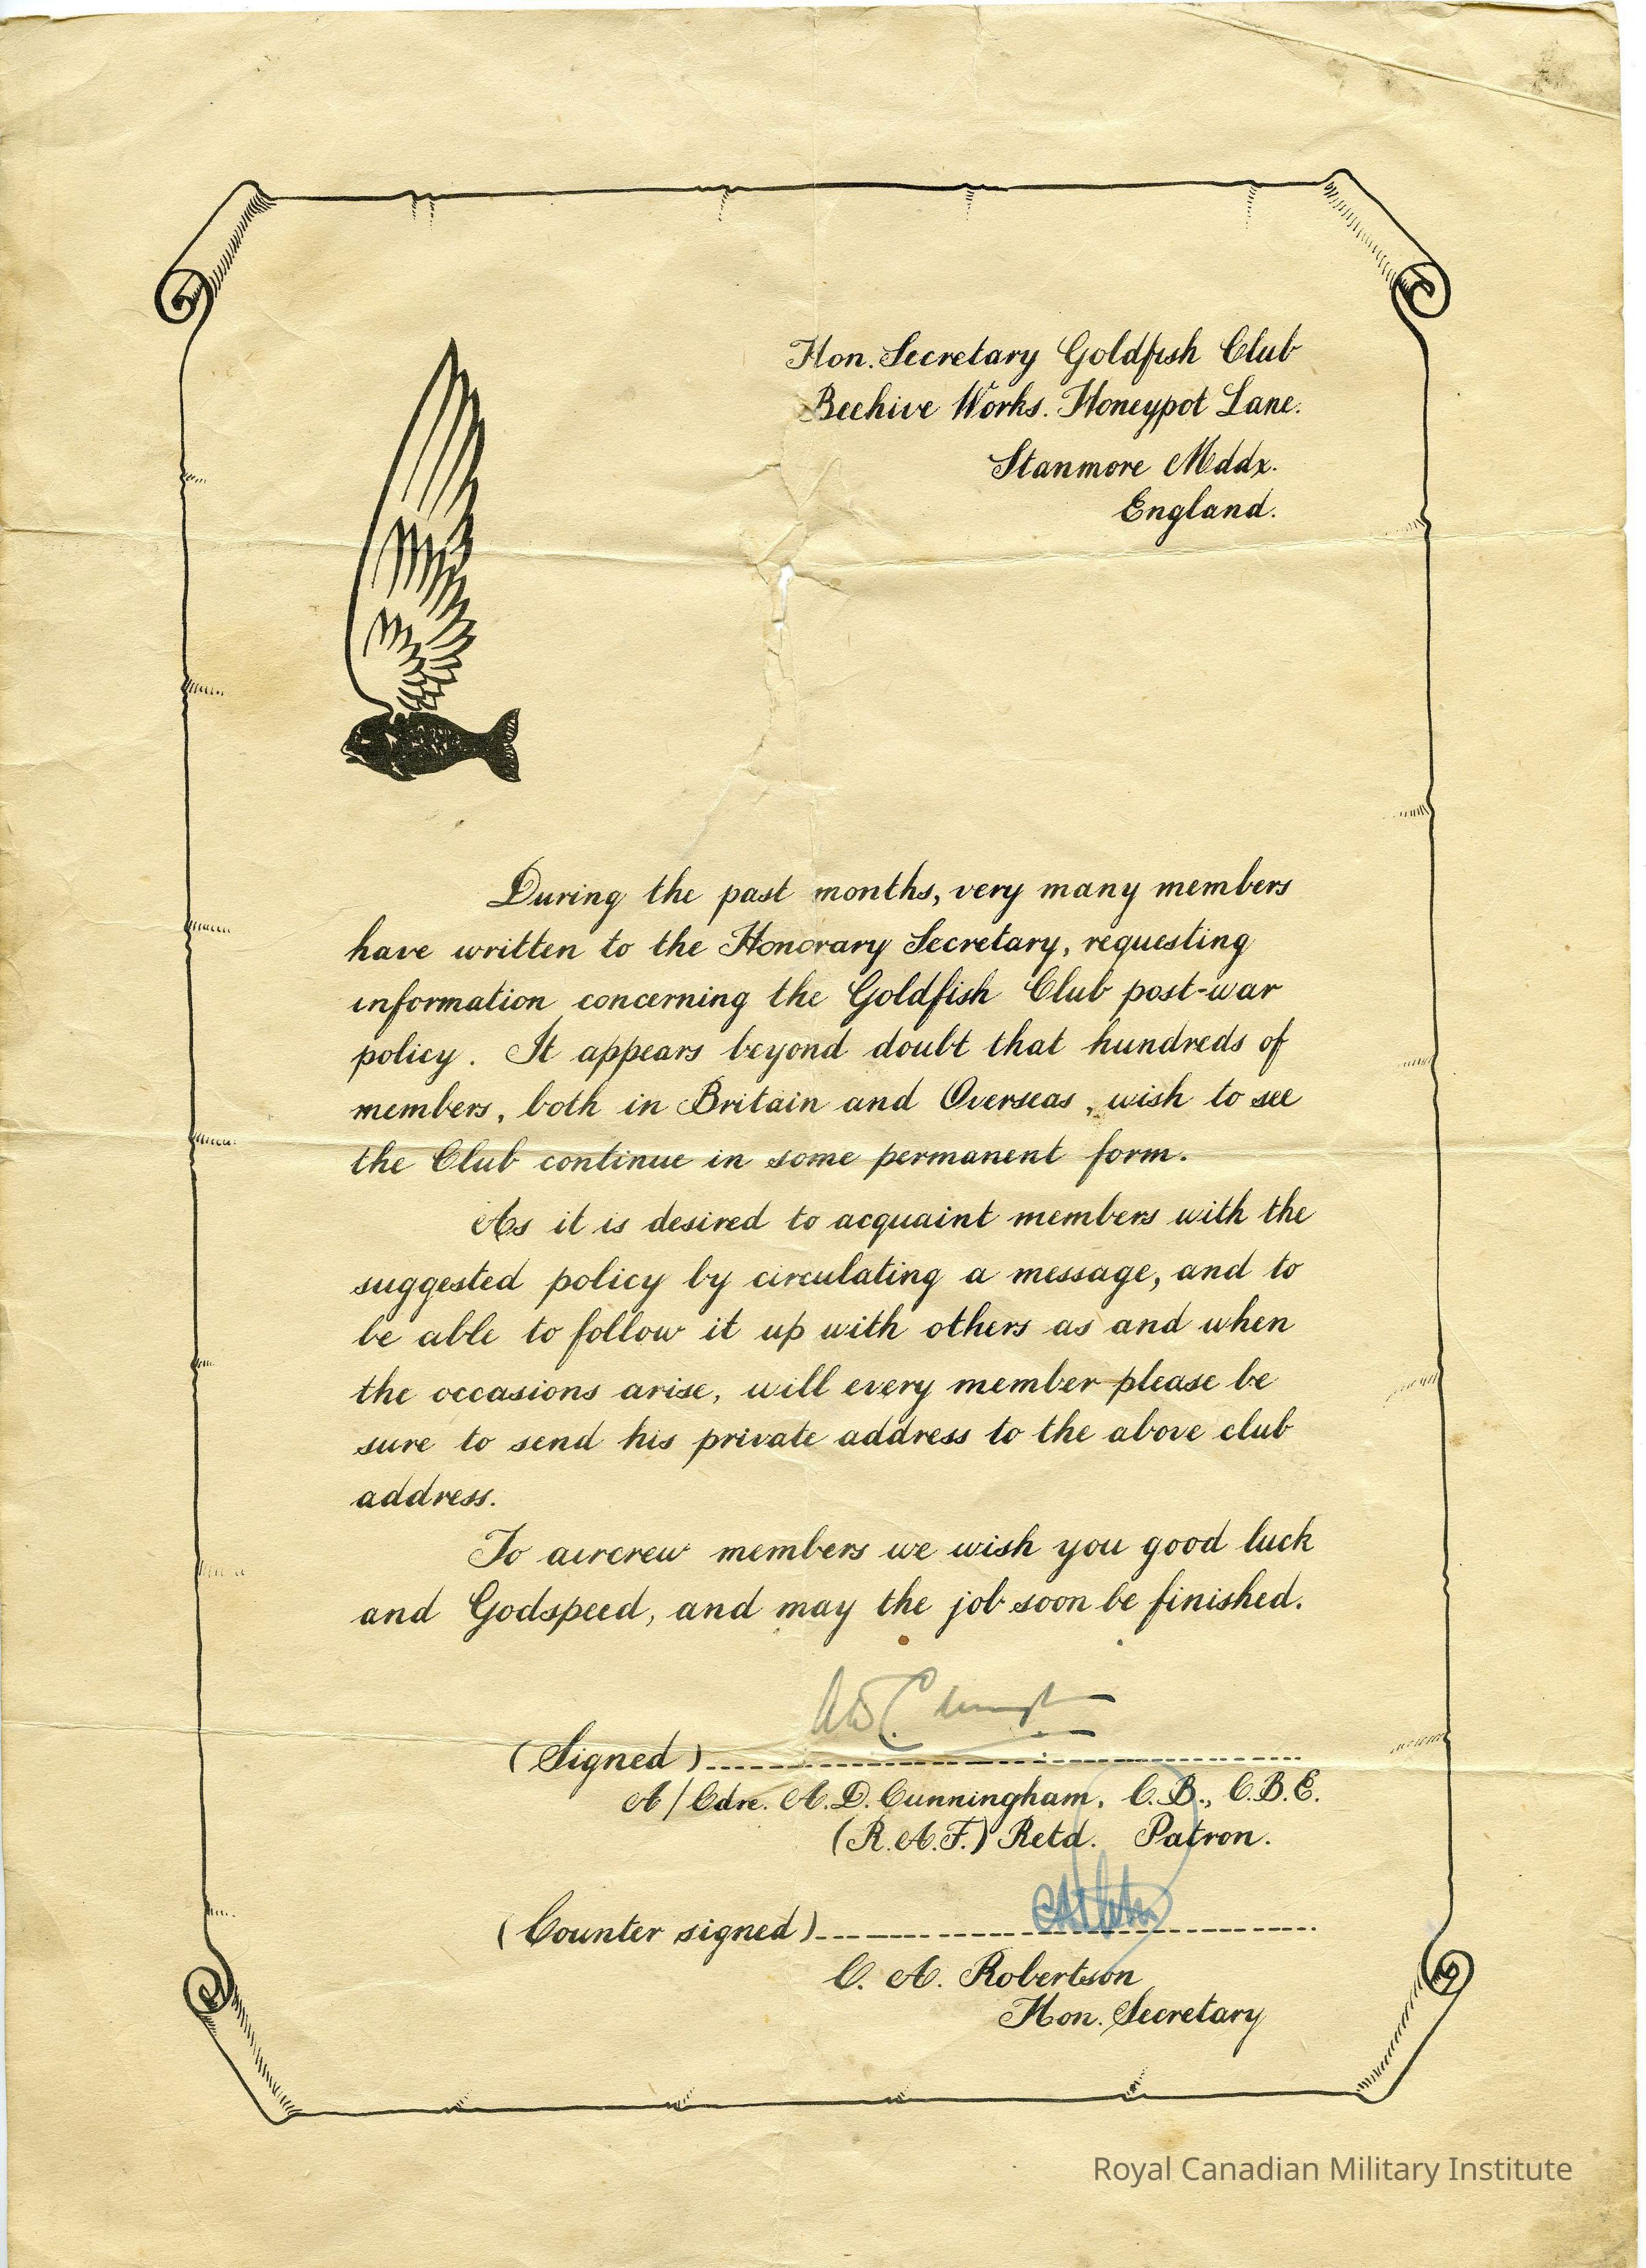 Hon. Secretary Goldfish Club
Beehive Works. Honeypot Lane.
Stanmore Mddx.
England.
During the past months, very many members
have written to the Honorary Secretary, requesting
information concerning the Goldfish Club post-war
policy. It appears beyond doubt that hundreds of
members, both in Britain and Overseas, wish to see
the Club continue in some permanent form.
As it is desired to acquaint members with the
suggested policy by circulating a message, and to
be able to follow it up with others as and when
the occasions arise, will every member please be
sure to send his private address to the above club
address.
To aircrew members we wish you good luck
and Godspeed, and may the job soon be finished.
(Signed)
A/Cdre. A.D. Cunningham, C.B., C.B.E.
(R.A.F.) Retd. Patron.
(Counter signed)
C. A. Robertson
Hon. Secretary
Royal Canadian Military Institute